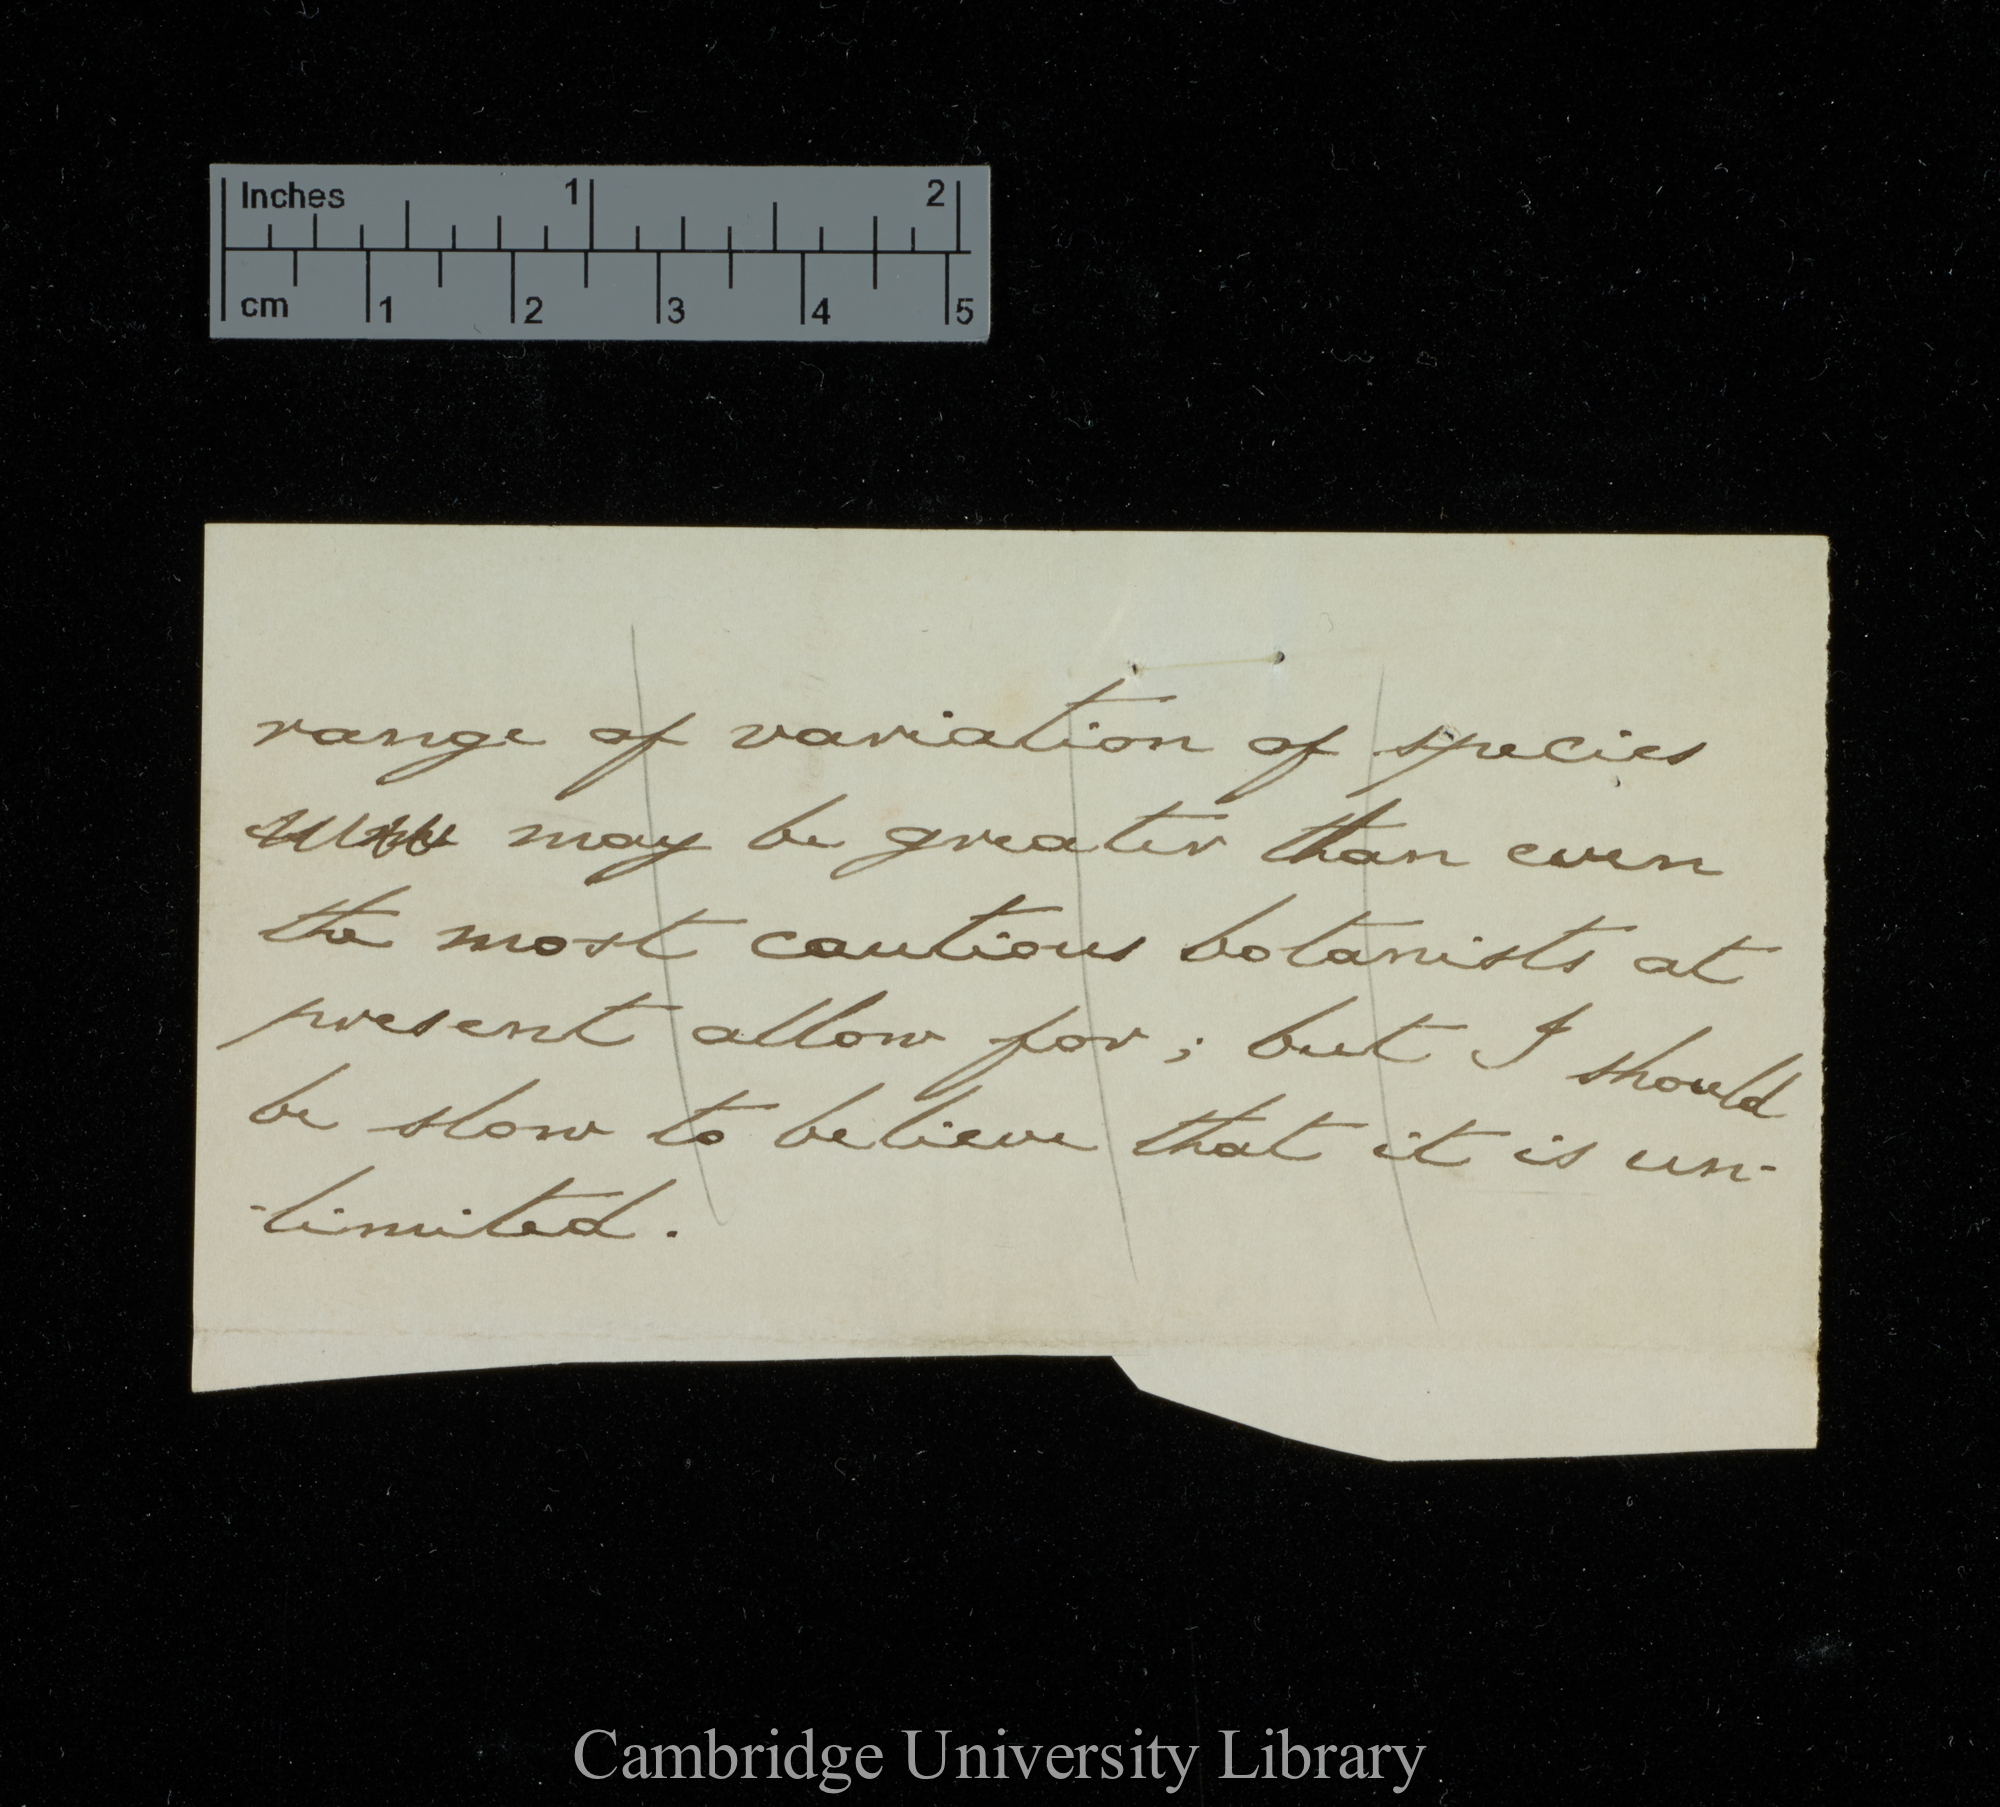 Inches 1 2
cm 1 2 3 4 5
range of variation of species
may be greater than even
the most cautious botanists at
present allow for; but I should
be slow to believe that it is un-
-limited.
Cambridge University Library